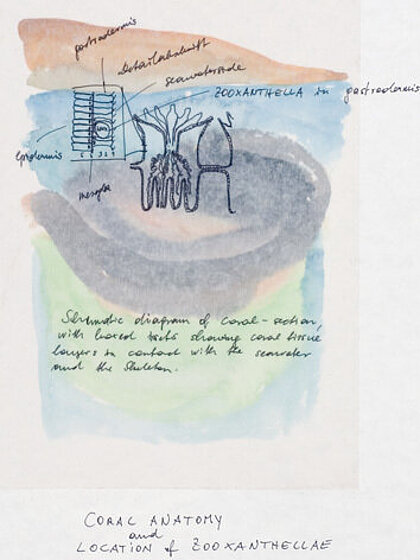 gastrodermis
Detailabschnitt
seawaterside
ZOOXANTHELLA in gastrodermis
Epidermis
mesoglea
Schematic diagram of coral-section,
with boxed showing coral tissue
layers in contact with the seawater
and the Skeleton.
CORAL ANATOMY
and
LOCATION of ZOOXANTHELLAE